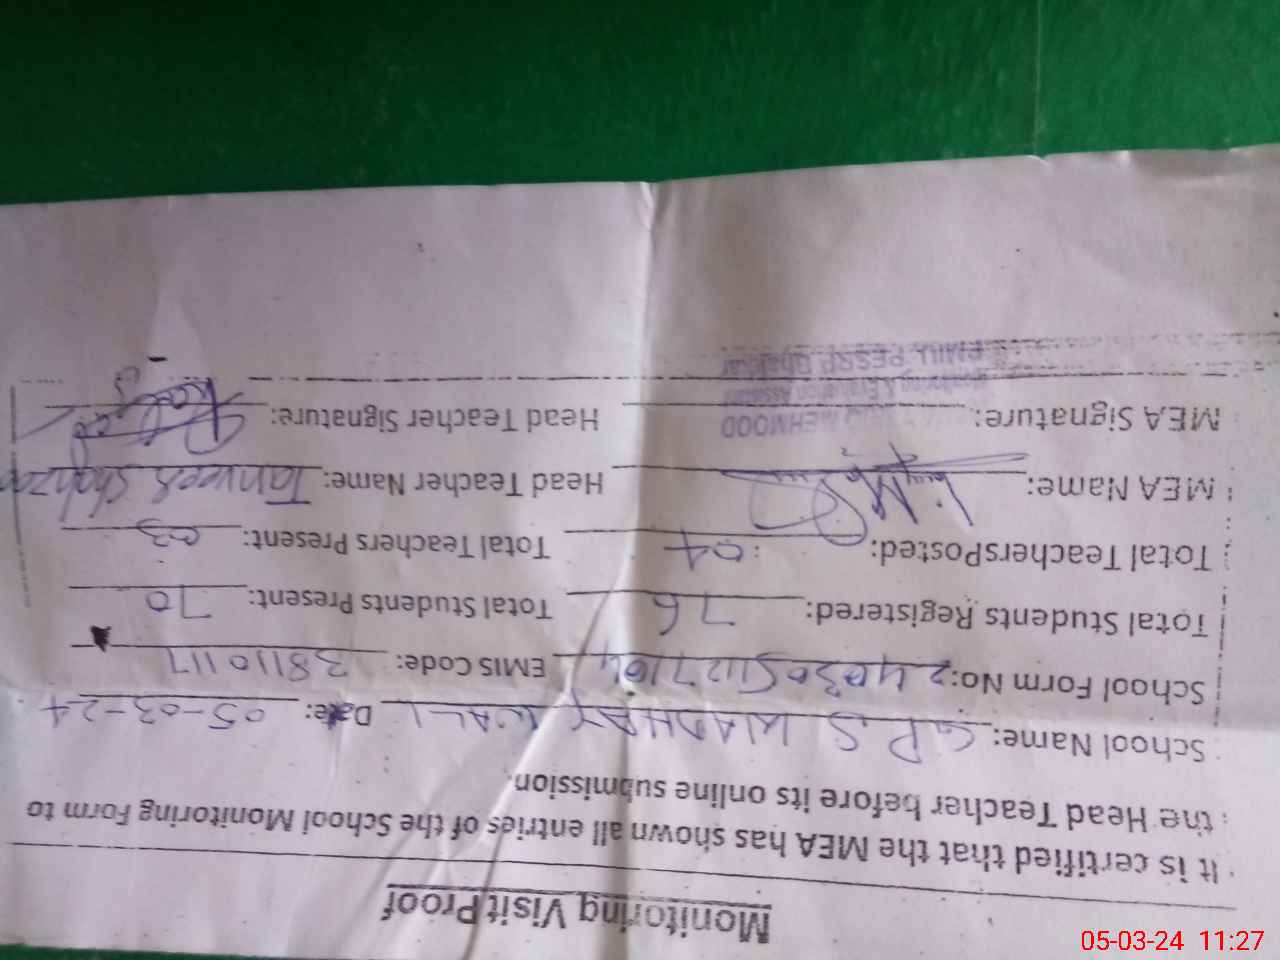 Monitoring Visit Proof
It is certified that the MEA has shown all entries of the School Monitoring Form to
the Head Teacher before its online submission.
School Name: G.P.S WADHAY WALI Date: 05-03-24
School Form No: EMIS Code: 38110117
Total Students Registered: 76 Total Students Present: 70
Total TeachersPosted: 04 Total Teachers Present: 03
MEA Name: Head Teacher Name: Tanveer Shahzad
MEA Signature: Head Teacher Signature:
MEHMOOD
Monitoring & Evaluation Assistant
PMIU, PESRP, Bhakkar
05-03-24 11:27